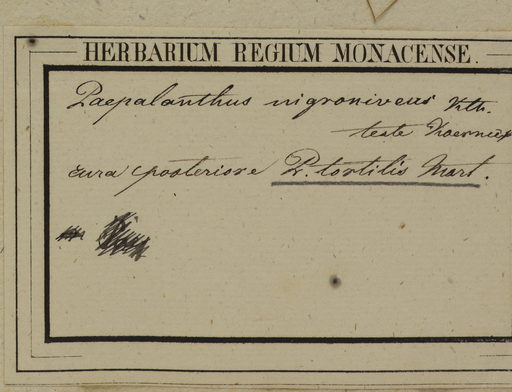 HERBARIUM REGIUM MONACENSE.
Paepalanthus nigroniveus Kth.
teste Koernick
cura posteriore P. tortilis Mart.